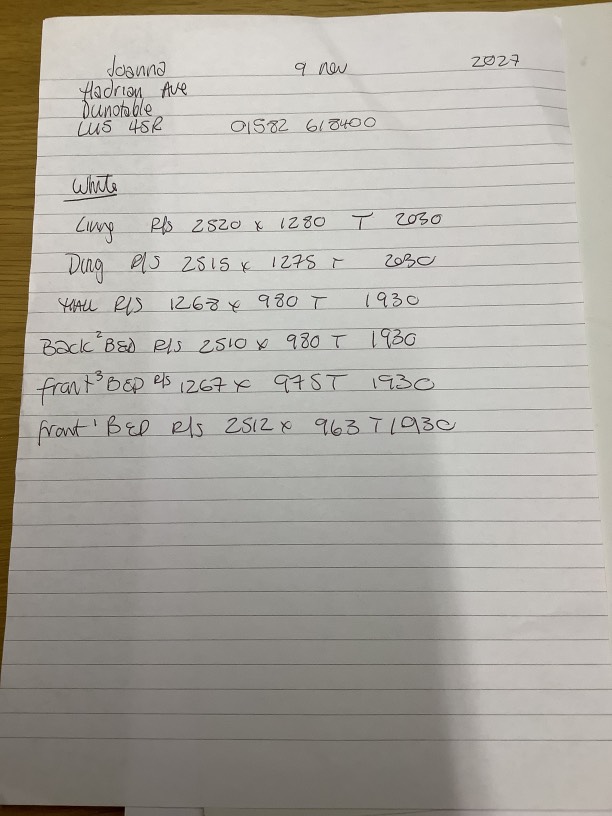 Joanna 9 nov 2027
Hadrian Ave
Dunotable
LU5 4SR 01582 618400
White
Living R/S 2520 x 1280 T 2030
Ding R/S 2515 x 1275 T 2030
HALL R/S 1268 x 980 T 1930
Back 2 BED R/S 2510 x 980 T 1930
front 3 BED R/S 1267 x 975 T 1930
front 1 BED R/S 2512 x 963 T 1930